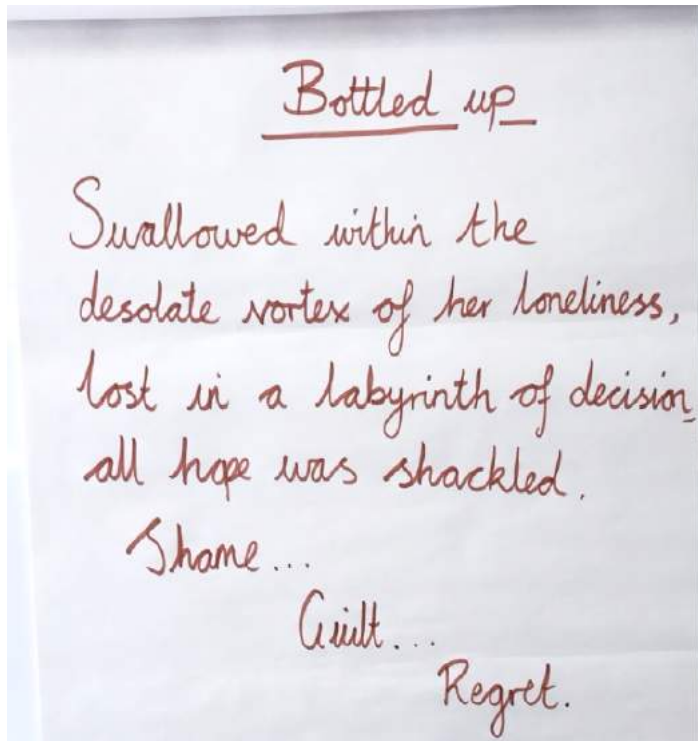 Bottled up
Swallowed within the
desolate vortex of her loneliness,
lost in a labyrinth of decision
all hope was shackled.
Shame...
Guilt...
Regret.